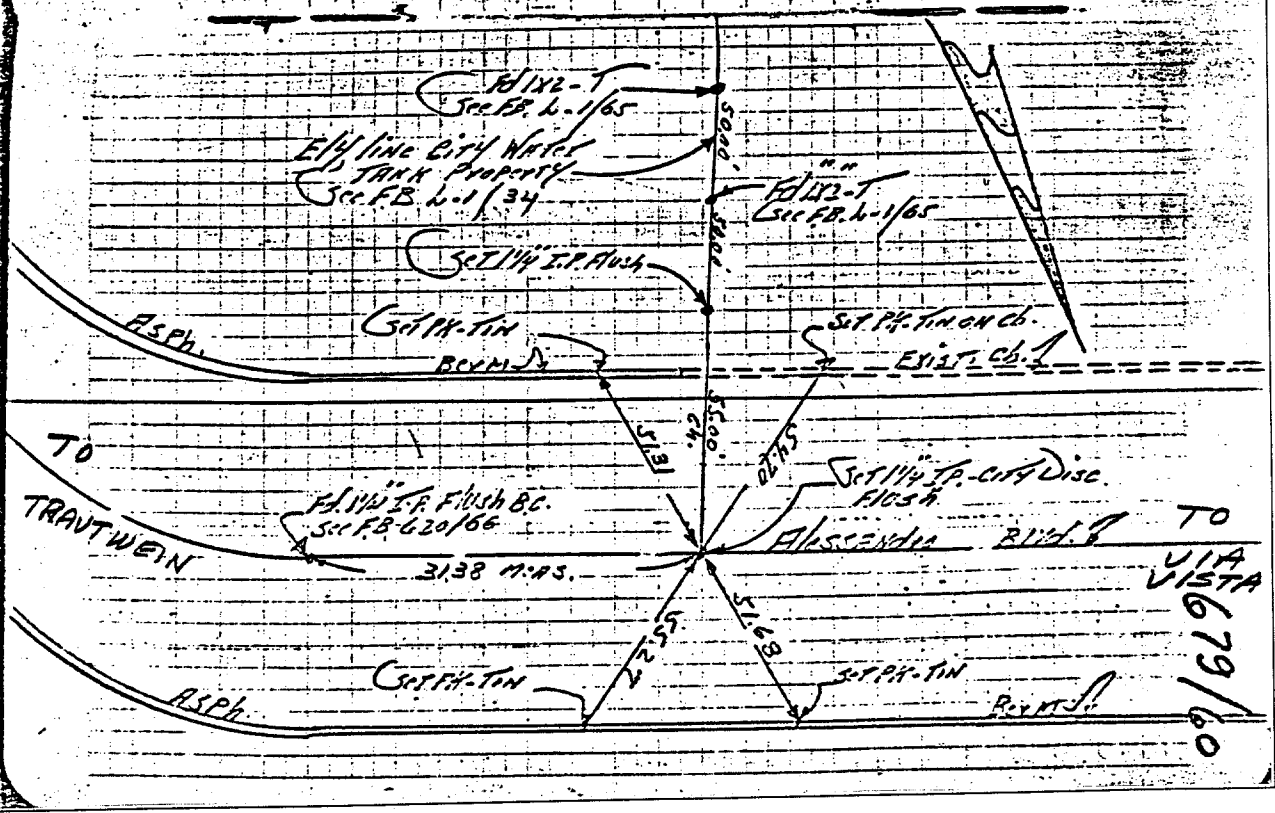 Fd 1X2-T
See F.B. L-1/65
50.00'
E'l'y line City Water
Tank Property
See F.B. L-1/34
" "
Fd 1X2-T
See F.B. L-1/65
50.00'
Set 1¼" I.P. Flush
Set PK-Tin
Set PK-Tin on Cb.
Asph.
Berm
Exist. Cb.
55.00'
Ch.
51.31
54.20
TO
TRAUTWEIN
Fd. 1¼" I.P. Flush B.C.
See F.B. 620/66
Set 1¼" I.P.-City Disc.
Flush
Alessandro Blvd.
TO
VIA
VISTA
31.38 Meas.
55.22
51.68
Set PK-Tin
Set PK-Tin
Asph
Berm
679/60